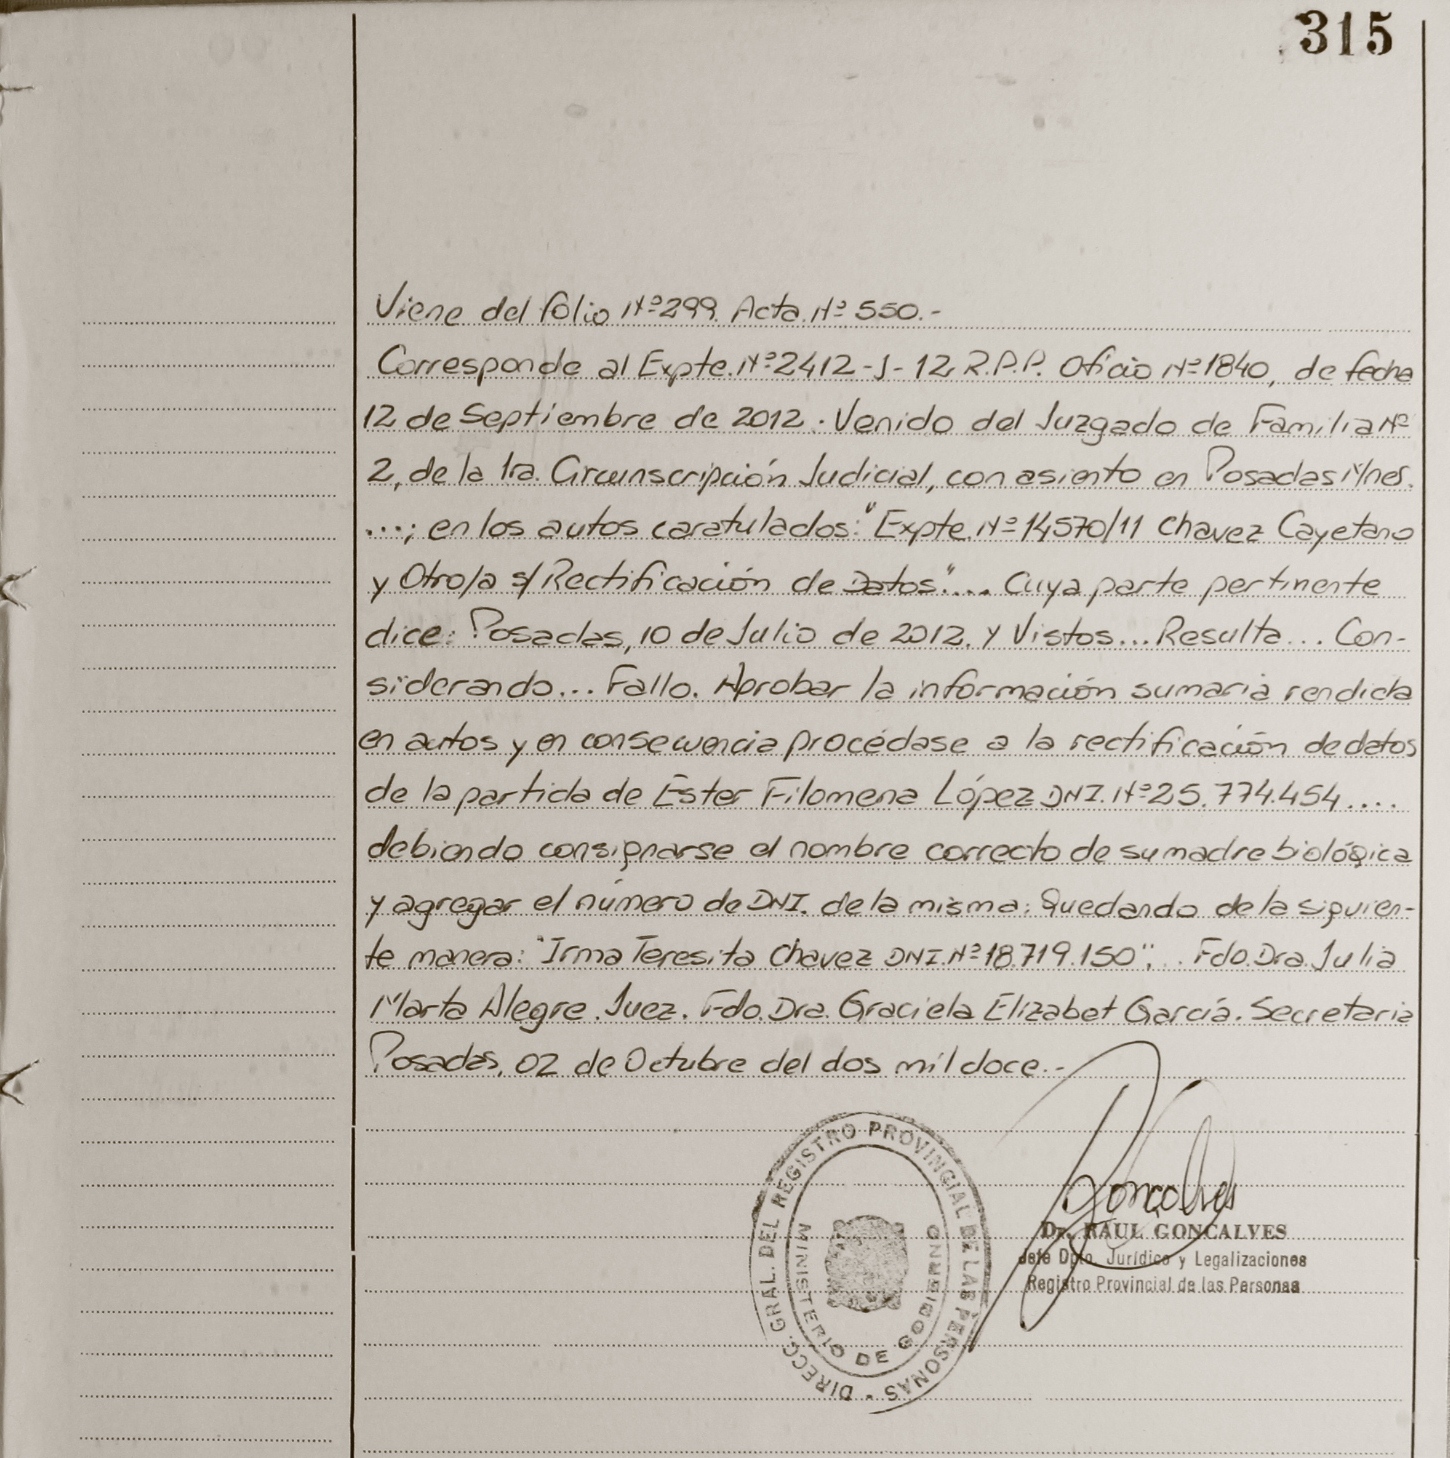 315
Viene del folio Nº299. Acta Nº 550.-
Corresponde al Expte. Nº2412-J-12 R.P.P. Oficio Nº1840, de fecha
12 de Septiembre de 2012. Venido del Juzgado de Familia Nº
2, de la 1ra. Circunscripción Judicial, con asiento en Posadas Mnes.
...; en los autos caratulados: "Expte. Nº 14570/11 Chavez Cayetano
y Otro/a s/ Rectificación de Datos".... Cuya parte pertinente
dice: Posadas, 10 de Julio de 2012. y Vistos... Resulta... Con-
siderando... Fallo. Aprobar la información sumaria rendida
en autos y en consecuencia procédase a la rectificación de datos
de la partida de Ester Filomena López DNI. Nº25.774.454....
debiendo consignarse el nombre correcto de su madre biológica
y agregar el número de DNI. de la misma: Quedando de la siguien-
te manera: "Irma Teresita Chavez DNI. Nº18.719.150"; . Fdo. Dra. Julia
Marta Alegre. Juez. Fdo. Dra. Graciela Elizabet García. Secretaria
Posadas, 02 de Octubre del dos mil doce.-
DIRECC. GRAL. DEL REGISTRO PROVINCIAL DE LAS PERSONAS -
MINISTERIO DE GOBIERNO
Goncalves
Dr. RAUL GONCALVES
Jefe Dpto. Jurídico y Legalizaciones
Registro Provincial de las Personas